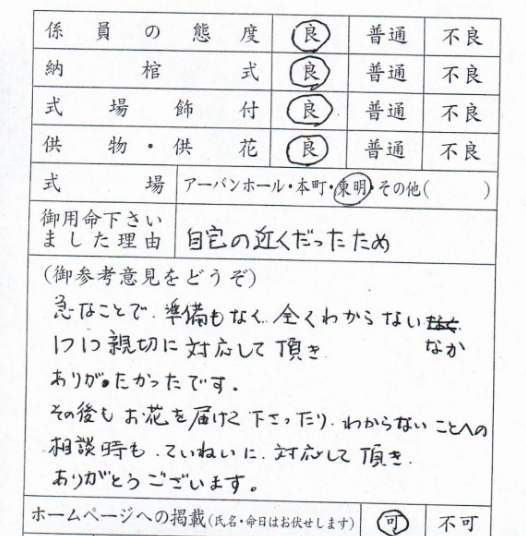 係員の態度 良 普通 不良
納棺式 良 普通 不良
式場飾付 良 普通 不良
供物・供花 良 普通 不良
式場 アーバンホール・本町・東明・その他( )
御用命下さい
ました理由 自宅の近くだったため
(御参考意見をどうぞ)
急なことで、準備もなく、全くわからない
なか
1つ1つ親切に対応して頂き
ありがたかったです。
その後もお花を届けて下さったり、わからないことへの
相談時も、ていねいに、対応して頂き、
ありがとうございます。
ホームページへの掲載(氏名・命日はお伏せします) 可 不可